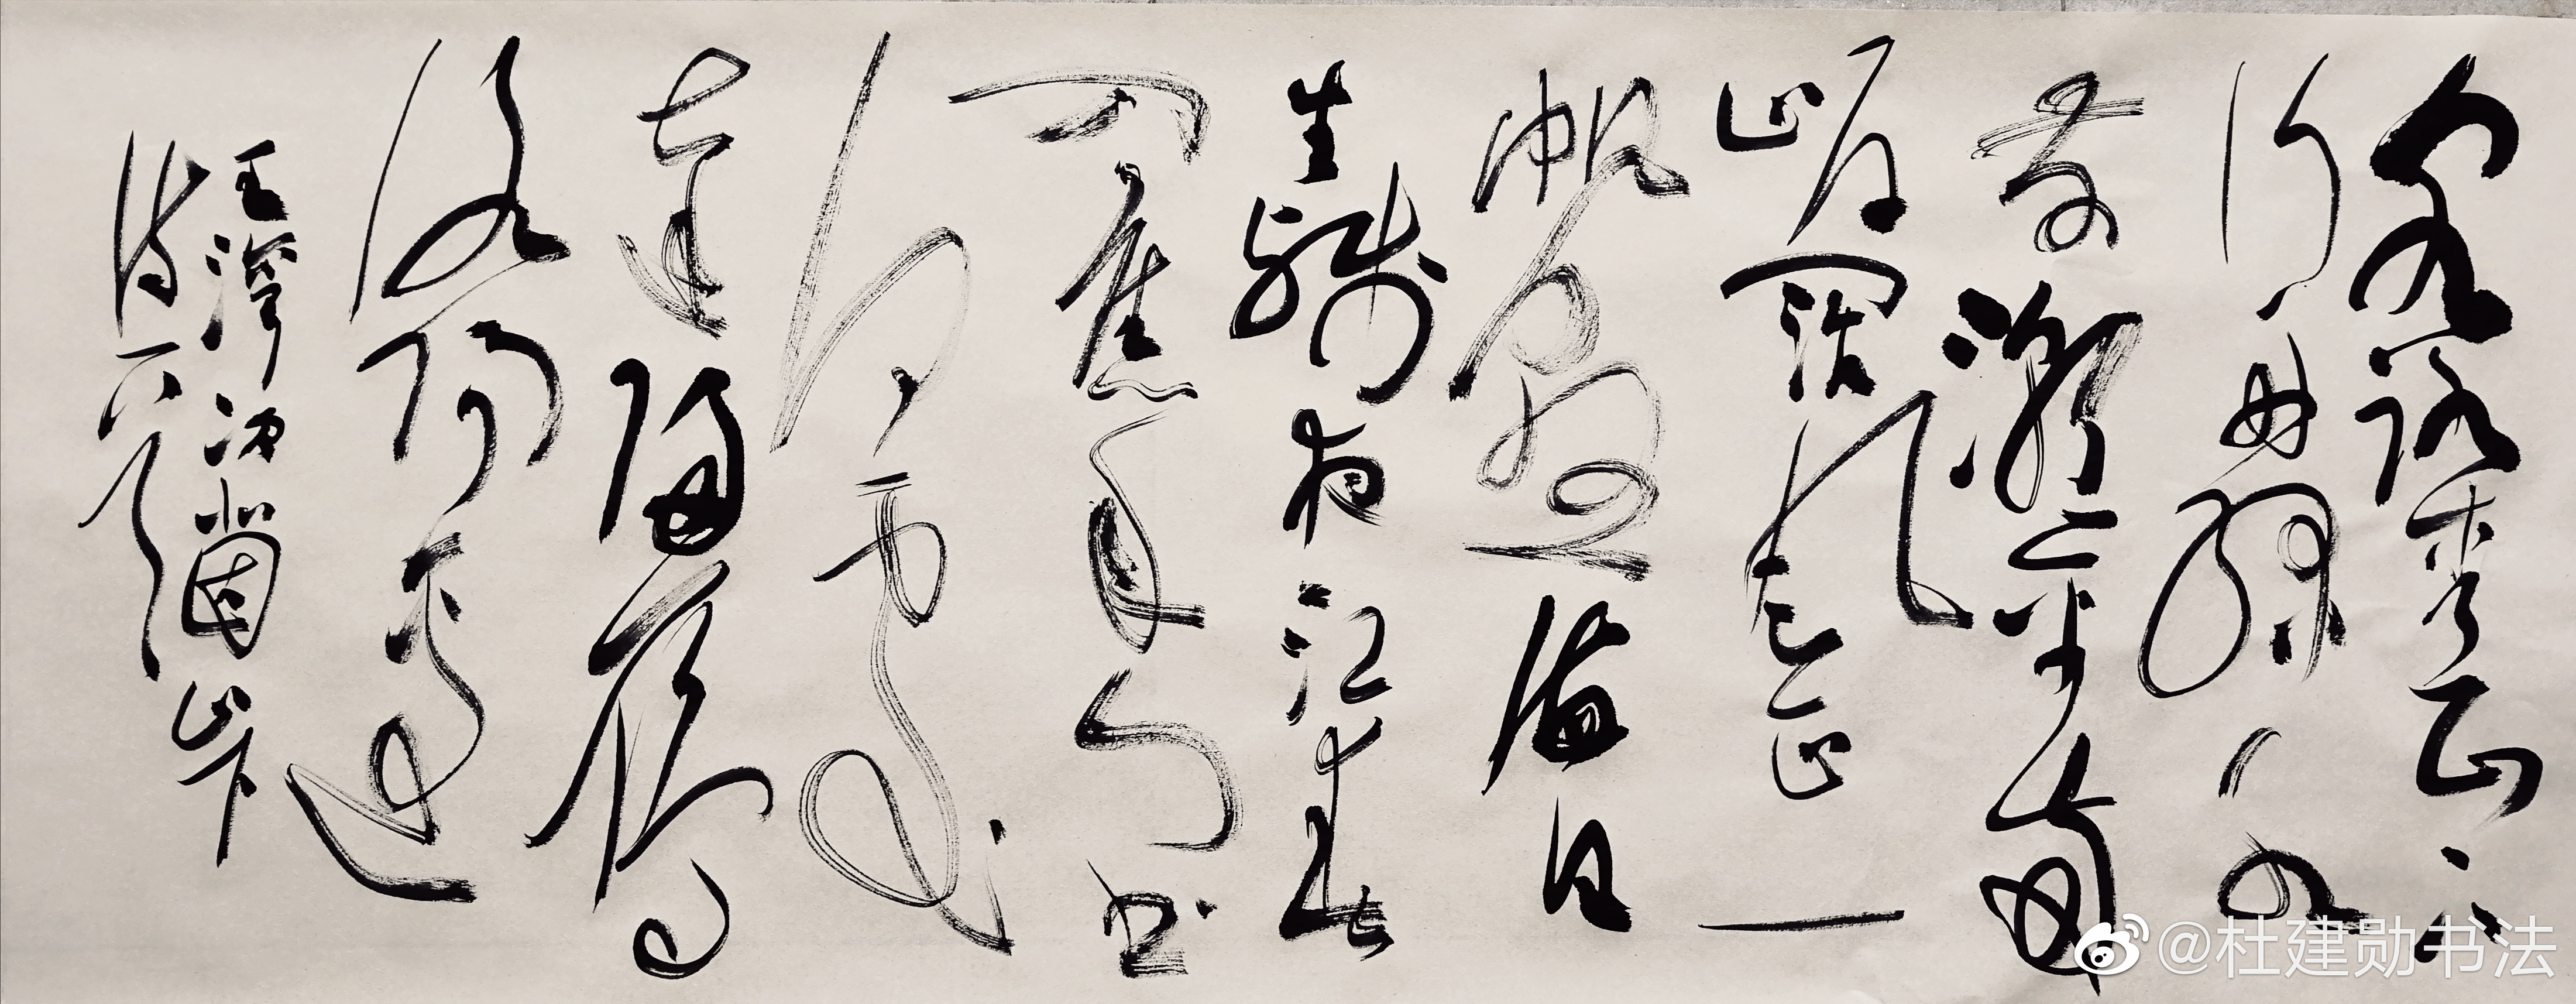 客路青山外
行舟绿水
前潮平两
岸阔风正一
帆悬海日
生残夜江春
入旧年乡书
何处
达归雁
洛阳边
王湾次北固山下
诗
@杜建勋书法